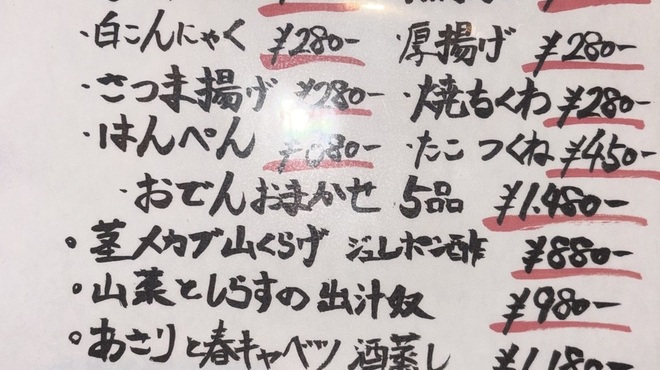 ・白こんにゃく ¥280- ・厚揚げ ¥280-
・さつま揚げ ¥280- ・焼ちくわ ¥280-
・はんぺん ・たこつくね ¥450-
・おでんおまかせ 5品 ¥1.480-
。茎メカブ山くらげ ジュレポン酢 ¥880-
。山菜としらすの出汁奴 ¥980-
。あさりと春キャベツ 酒蒸し ¥1.180-